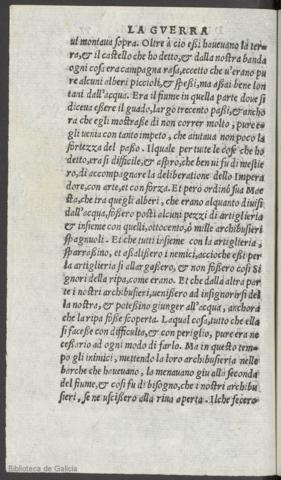 LA GVERRA
ui montaua sopra. Oltre à ciò essi haueuano la ter-
ra, & il castello che ho detto, & dalla nostra banda
ogni cosa era campagna rasa, eccetto che u'erano pu
re alcuni alberi piccioli, & spessi, ma assai bene lon
tani dall'acqua. Era il fiume in quella parte doue si
diceua essere il guado, largo trecento passi, & anchο
ra che egli mostrasse di non correr molto, pure e-
gli uenia con tanto impeto, che aiutaua non poco la
fortezza del passo. Ilquale per tutte le cose che ho
detto, era si difficile, & aspro, che ben ui fu di mestie
ro, di accompagnare la deliberatione dello Impera
dore, con arte, et con forza. Et però ordinò sua Mae
sta, che tra quegli alberi, che erano alquanto diuisi
dall'acqua, fossero posti alcuni pezzi di artiglieria
& insieme con quelli, ottocento, ò mille archibusieri
spagnuoli. Et che tutti insieme con la artiglieria,
sparassino, et assalissero i nemici, acciòche essi per
la artiglieria si allargassero, & non fossero così Si
gnori della ripa, come erano. Et che dalla altra par
te i nostri archibusieri, uenissero ad insignorirsi del
la nostra, & potessino giunger all'acqua, anchora
che la ripa fosse scoperta. Laqual cosa, tutto che ella
si facesse con difficulta, & con periglio, pure era ne
cessario ad ogni modo di farlo. Ma in questo tem-
po gli inimici, mettendo la loro archibusieria nelle
barche che haueuano, la menauano giu alla seconda
del fiume, & così fu di bisogno, che i nostri archibu
sieri, se ne uscissero alla riua aperta. Ilche fecero
Biblioteca de Galicia